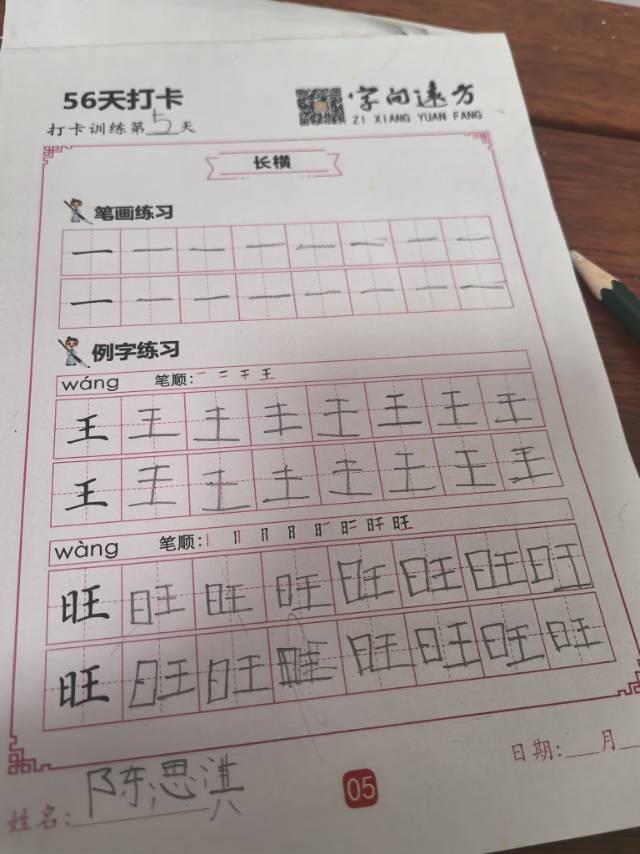 56天打卡
字向远方
打卡训练第5天
ZI XIANG YUAN FANG
长横
笔画练习
一 一 一 一 一 一 一 一
一 一 一 一 一 一 一 一
例字练习
wáng 笔顺: 一 二 干 王
王 王 王 王 王 王 王 王
王 王 王 王 王 王 王 王
wàng 笔顺: 旺
旺 旺 旺 旺 旺 旺 旺 旺
旺 旺 旺 旺 旺 旺 旺 旺
姓名: 陈思淇
05
日期: 月